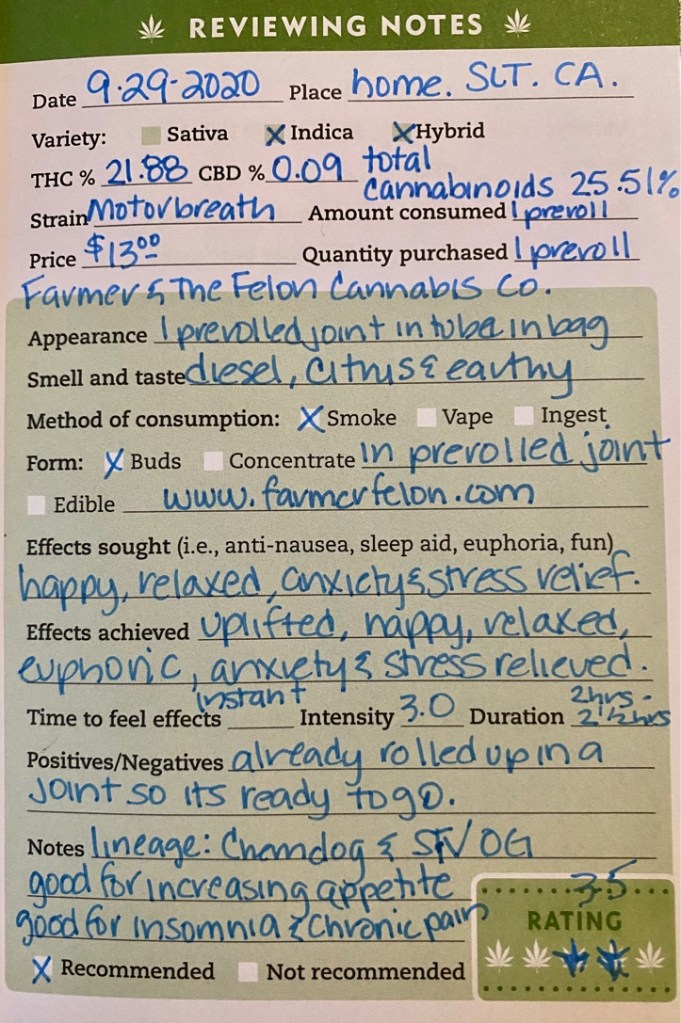 REVIEWING NOTES
Date 9.29-2020 Place home. SLT. CA.
Variety: Sativa X Indica X Hybrid
THC % 21.88 CBD % 0.09 total
cannabinoids 25.51%
Strain Motorbreath Amount consumed 1 preroll
Price $13.00 Quantity purchased 1 preroll
Farmer & The Felon Cannabis Co.
Appearance 1 prerolled joint in tube in bag
Smell and taste diesel, citrus & earthy
Method of consumption: X Smoke Vape Ingest
Form: X Buds Concentrate in prerolled joint
Edible www.farmerfelon.com
Effects sought (i.e., anti-nausea, sleep aid, euphoria, fun)
happy, relaxed, anxiety & stress relief.
Effects achieved uplifted, happy, relaxed,
euphoric, anxiety & stress relieved.
Time to feel effects instant Intensity 3.0 Duration 2hrs - 2 1/2 hrs
Positives/Negatives already rolled up in a
joint so its ready to go.
Notes lineage: Chemdog & SFV OG
good for increasing appetite
good for insomnia & chronic pain
3.5
RATING
X Recommended Not recommended